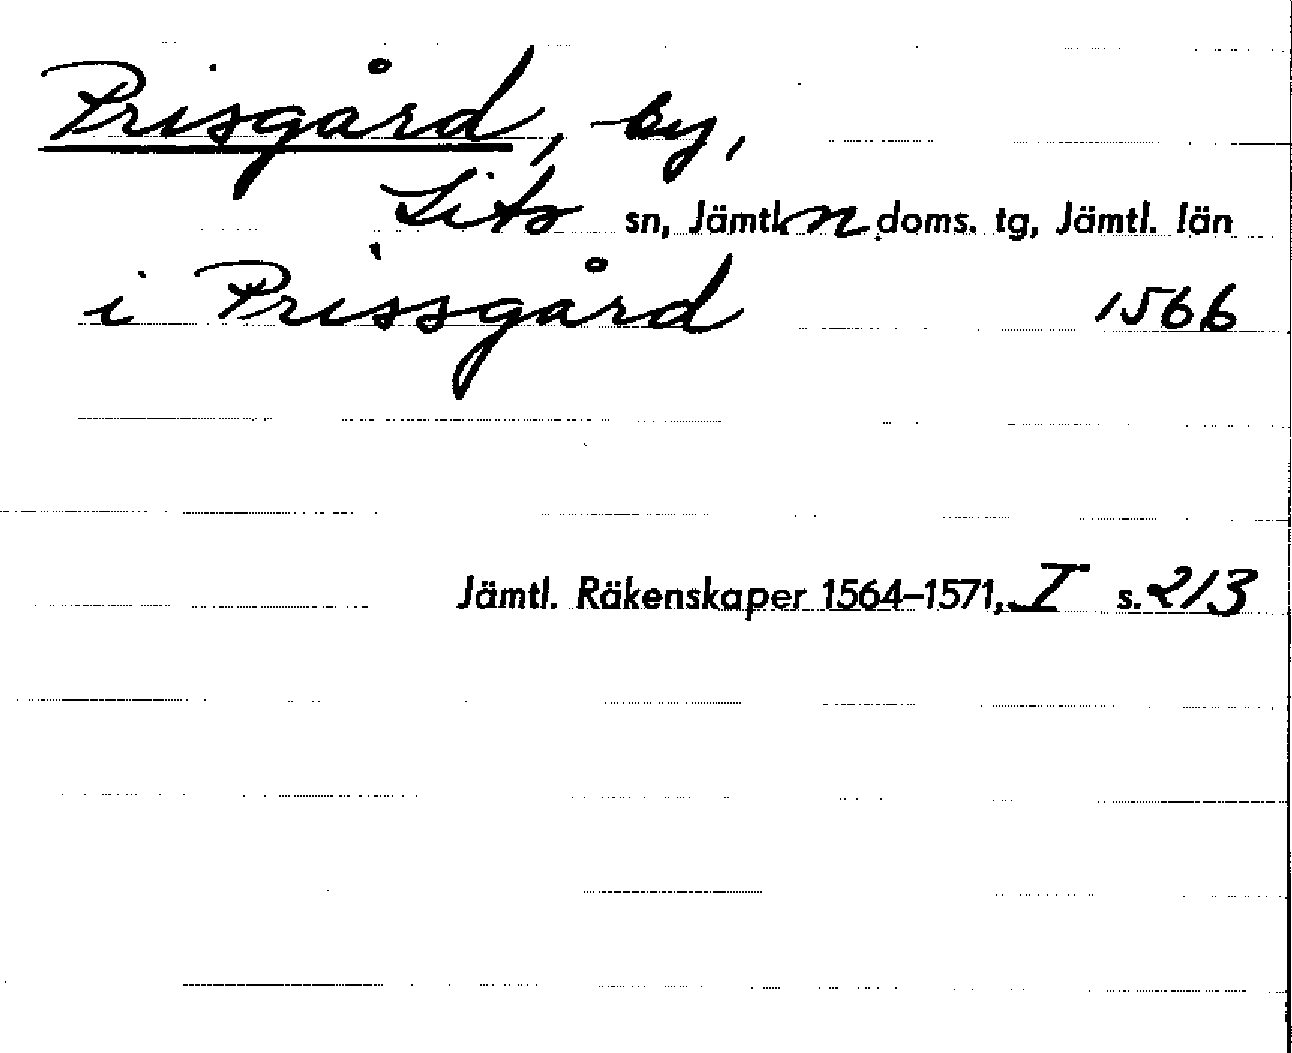 Prisgård, by,
Lits sn, Jämtl. n doms. tg, Jämtl. län
i Prissgård 1566
Jämtl. Räkenskaper 1564–1571, I s. 213